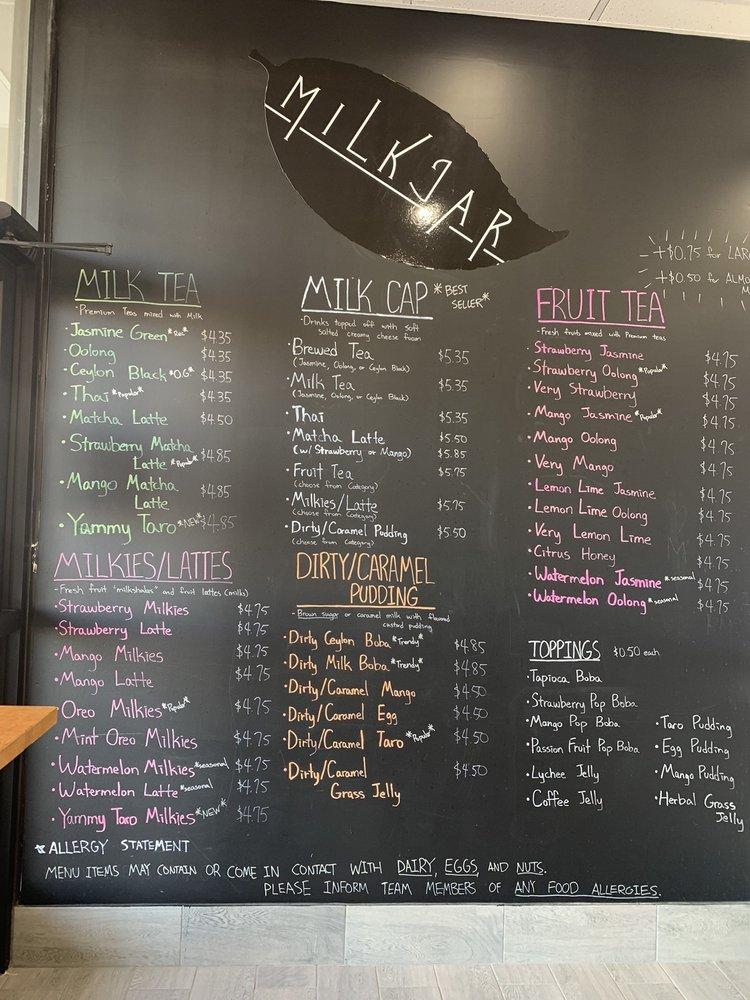 MILKJAR
+$0.75 for LAR
+$0.50 for ALMO
M
MILK TEA
-Premium Teas mixed with Milk
·Jasmine Green $4.35
·Oolong $4.35
·Ceylon Black *O.G* $4.35
·Thai *Popular* $4.35
·Matcha Latte $4.50
·Strawberry Matcha
Latte *Popular* $4.85
·Mango Matcha
Latte $4.85
·Yammy Taro *NEW* $4.85
MILK CAP *BEST
SELLER*
-Drinks topped off with soft
salted creamy cheese foam
·Brewed Tea $5.35
(Jasmine, Oolong, or Ceylon Black)
·Milk Tea $5.35
(Jasmine, Oolong, or Ceylon Black)
·Thai $5.35
·Matcha Latte $5.50
(w/Strawberry or Mango) $5.85
·Fruit Tea $5.75
(choose from Category)
·Milkies/Latte $5.75
(choose from Category)
·Dirty/Caramel Pudding $5.50
(choose from Category)
FRUIT TEA
-Fresh fruits mixed with Premium teas
·Strawberry Jasmine $4.75
·Strawberry Oolong *Popular* $4.75
·Very Strawberry $4.75
·Mango Jasmine *Popular* $4.75
·Mango Oolong $4.75
·Very Mango $4.75
·Lemon Lime Jasmine $4.75
·Lemon Lime Oolong $4.75
·Very Lemon Lime $4.75
·Citrus Honey $4.75
·Watermelon Jasmine *seasonal $4.75
·Watermelon Oolong *seasonal $4.75
MILKIES/LATTES
-Fresh fruit "milkshakes" and fruit lattes (milks)
·Strawberry Milkies $4.75
·Strawberry Latte $4.75
·Mango Milkies $4.75
·Mango Latte $4.75
·Oreo Milkies *Popular* $4.75
·Mint Oreo Milkies $4.75
·Watermelon Milkies *seasonal $4.75
·Watermelon Latte *seasonal $4.75
·Yammy Taro Milkies *NEW* $4.75
DIRTY/CARAMEL
PUDDING
-Brown sugar or caramel milk with flavored
custard pudding
·Dirty Ceylon Boba *Trendy* $4.85
·Dirty Milk Boba *Trendy* $4.85
·Dirty/Caramel Mango $4.50
·Dirty/Caramel Egg $4.50
·Dirty/Caramel Taro *Popular* $4.50
·Dirty/Caramel $4.50
Grass Jelly
TOPPINGS $0.50 each
·Tapioca Boba
·Strawberry Pop Boba
·Mango Pop Boba
·Passion Fruit Pop Boba
·Lychee Jelly
·Coffee Jelly
·Taro Pudding
·Egg Pudding
·Mango Pudding
·Herbal Grass
Jelly
*ALLERGY STATEMENT
MENU ITEMS MAY CONTAIN OR COME IN CONTACT WITH DAIRY, EGGS, AND NUTS.
PLEASE INFORM TEAM MEMBERS OF ANY FOOD ALLERGIES.